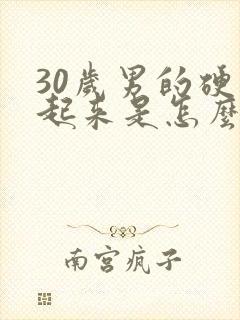 30歲男的硬
起来是怎麼
南宫疯子